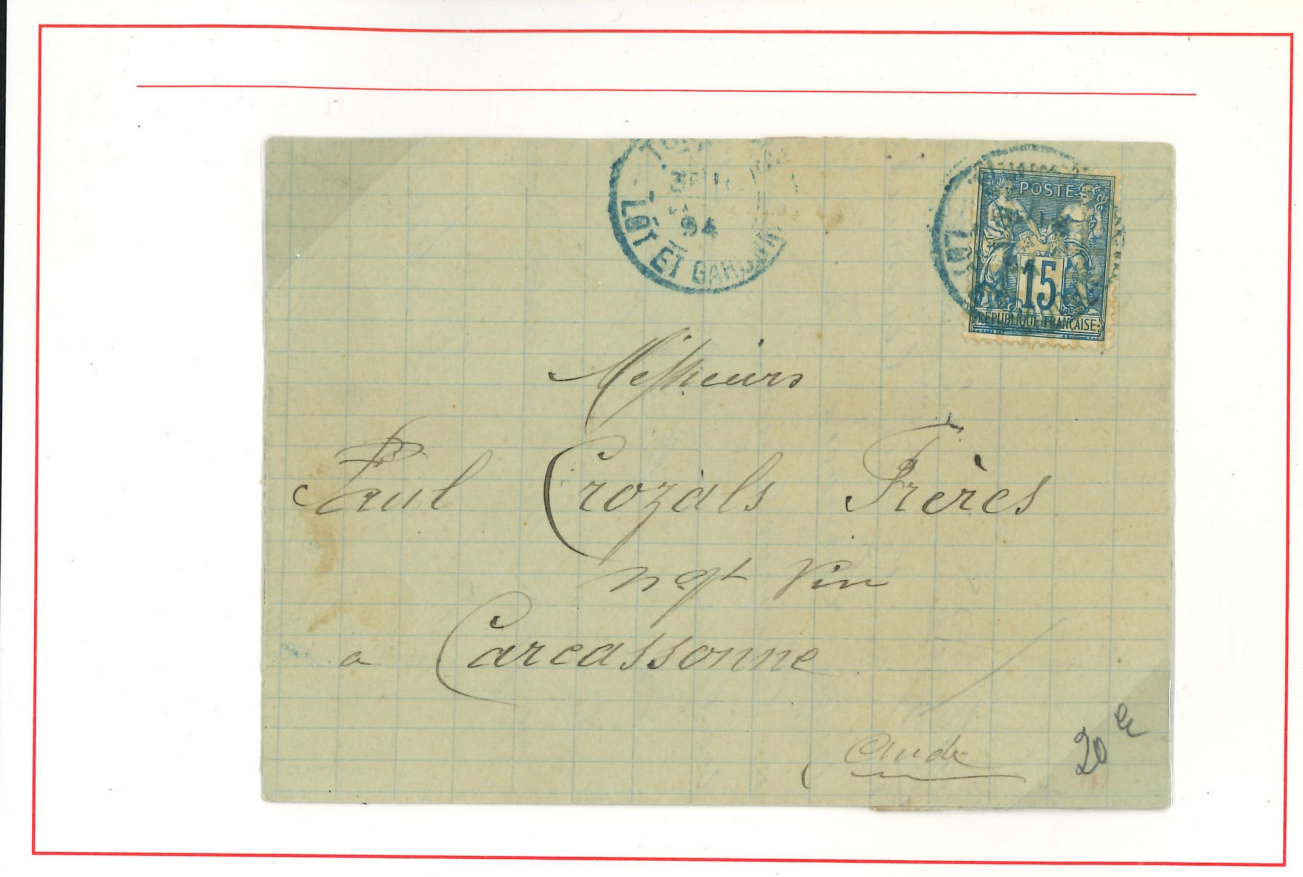 LOT ET GARONNE
94
POSTE
15
REPUBLIQUE FRANÇAISE
LOT
Messieurs
Paul Crozals Frères
Negt Vin
a Carcassonne
Aude
20 €